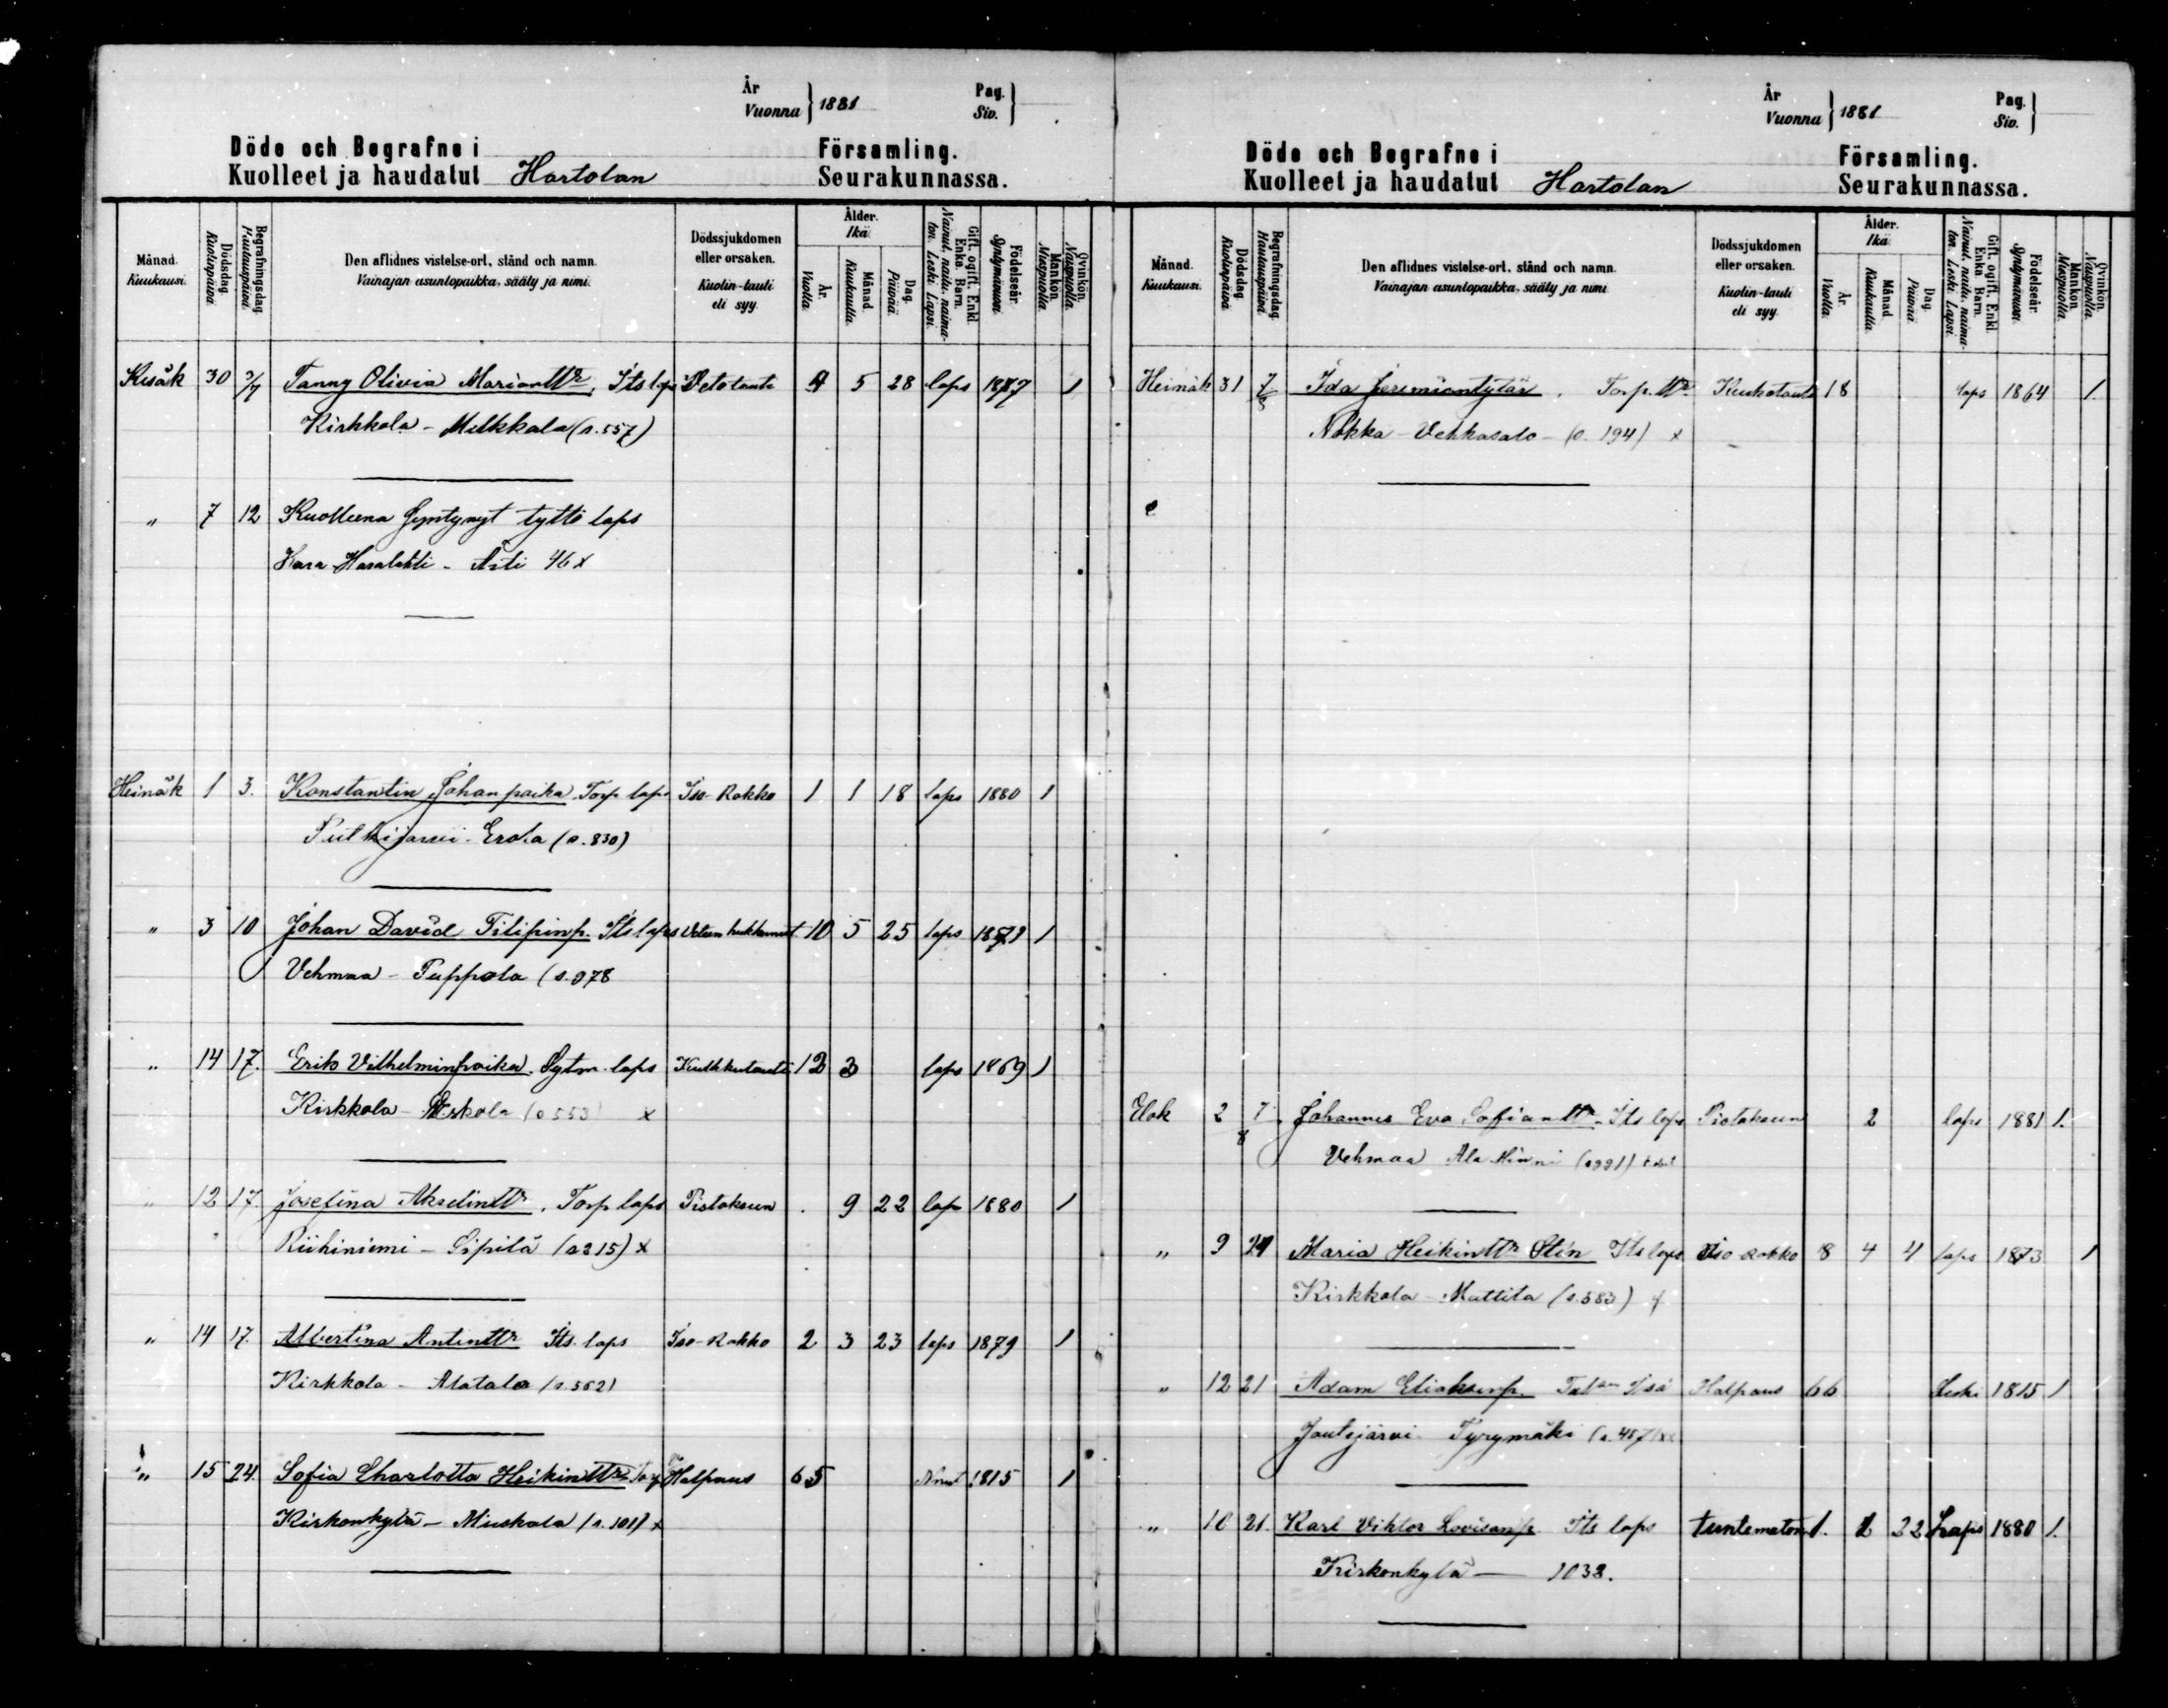 År
Vuonna } 1881
Pag.
Siv. }
Döde och Begrafne i Församling.
Kuolleet ja haudatut Hartolan Seurakunnassa.
Månad. Kuukausi.
Dödsdag. Kuolinpäivä.
Begrafningsdag. Hautauspäivä.
Den aflidnes vistelse-ort, stånd och namn.
Vainajan asuntopaikka, sääty ja nimi.
Dödssjukdomen eller orsaken.
Kuolin-tauti eli syy.
Ålder. Ikä.
År. Vuotta.
Månad. Kuukautta.
Dag. Päivää.
Gift, ogift, Enkl. Enka. Barn.
Nainut, naitu, naimaton. Leski. Lapsi.
Födelseår. Syntymävuosi.
Mankön. Miespuolia.
Qvinkön. Naispuolia.
Kesäk 30 3/7 Fanny Olivia Mariantt^r, Its laps Vetotauti 4 5 28 laps 1877 1
Kirkkola - Melkkala (s. 557)
" 7 12 Kuolleena Syntynyt tyttö laps
Kara Haralahti - Asti 46 x
Heinäk 1 3. Konstantin Johanpoika Torp laps Iso-Rokko 1 1 18 laps 1880 1
Putkijärvi - Erola (s. 830)
" 3 10 Johan David Filipinp. Its laps Veteen hukkunut 10 5 25 laps 1 1
Vehmaa - Puppola (s. 978
" 14 17. Erik Vilhelminpoika. Sytm. laps Kurkkutauti 12 3 laps 1869 1
Kirkkola - (s 553) x
" 12 17. Josefina Akselintt^r. Torp laps Pistoksen . 9 22 laps 1880 1
Riihiniemi - Sipilä (s 215) x
" 14 17. Albertina Antintt^r Its. laps Iso-Rokko 2 3 23 laps 1879 1
Kirkkola - Alatalo (s. 562)
" 15 24. Sofia Charlotta Heikintt^r Halpaus 65 1815 1
Kirkonkylä - Miekala (s. 101) x
År
Vuonna } 1881
Pag.
Siv. }
Döde och Begrafne i Församling.
Kuolleet ja haudatut Hartolan Seurakunnassa.
Månad. Kuukausi.
Dödsdag. Kuolinpäivä.
Begrafningsdag. Hautauspäivä.
Den aflidnes vistelse-ort, stånd och namn.
Vainajan asuntopaikka, sääty ja nimi.
Dödssjukdomen eller orsaken.
Kuolin-tauti eli syy.
Ålder. Ikä.
År. Vuotta.
Månad. Kuukautta.
Dag. Päivää.
Gift, ogift, Enkl. Enka. Barn.
Nainut, naitu, naimaton. Leski. Lapsi.
Födelseår. Syntymävuosi.
Mankön. Miespuolia.
Qvinkön. Naispuolia.
Heinäk 31 7/8 Ida Jeremiantytär. Torp. tt^r. Keuhkotauti 18 laps 1864 1.
Nokka - Vehkasalo - (s. 194) x
Elok 2 7/8 Johannes Eva Sofiantt^r - Its laps Pistoksen 2 laps 1881 1.
Vehmaa Ala Hinni (s 991)
" 9 21 Maria Heikintt^r Stén Its laps Iso-Rokko 8 4 4 laps 1873 1
Kirkkola - Mattila (s. 583)
" 12 21 Adam Eliaksenp. Tal^an Isä Halpaus 66 Leski 1815 1
Joutsjärvi Tyrymäki (s. 457) x
" 10 21. Karl Viktor Lovisanp. Its laps tuntematon 1. 2 22 Laps 1880 1.
Kirkonkylä - 1038.